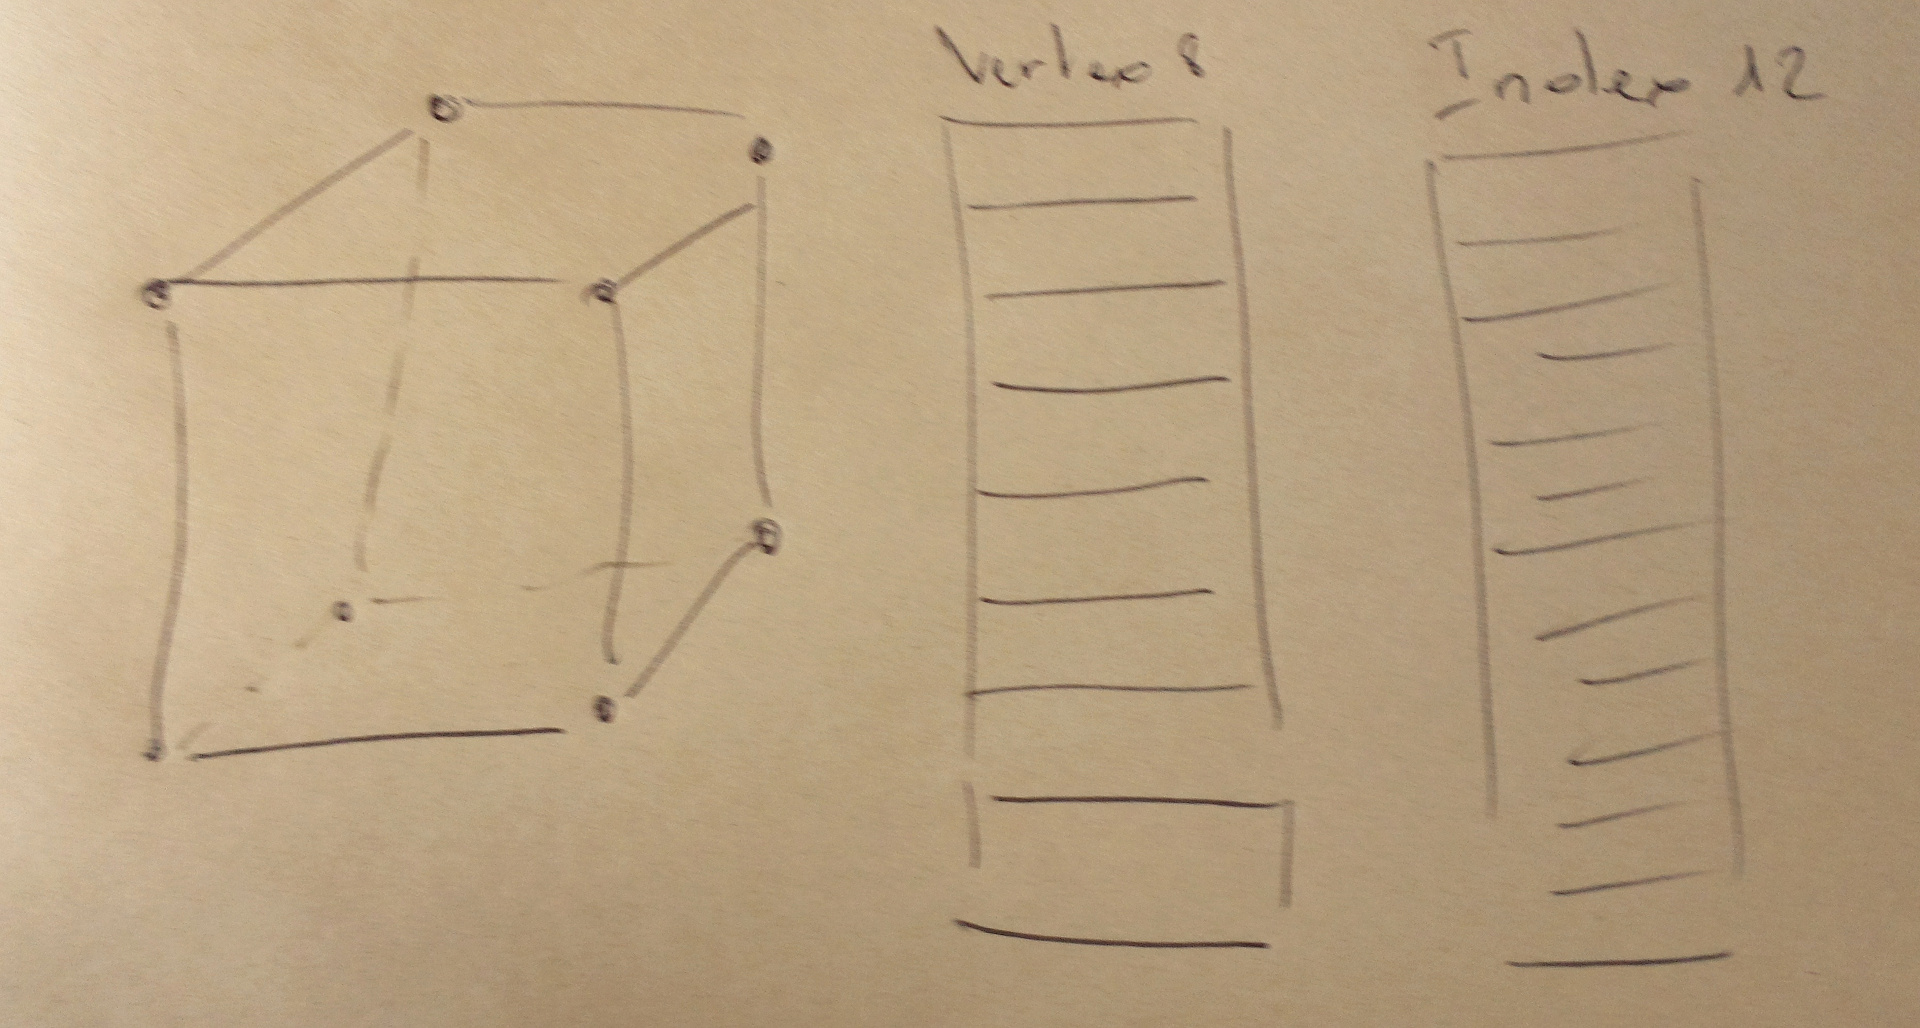 Vertex 8
Index 12